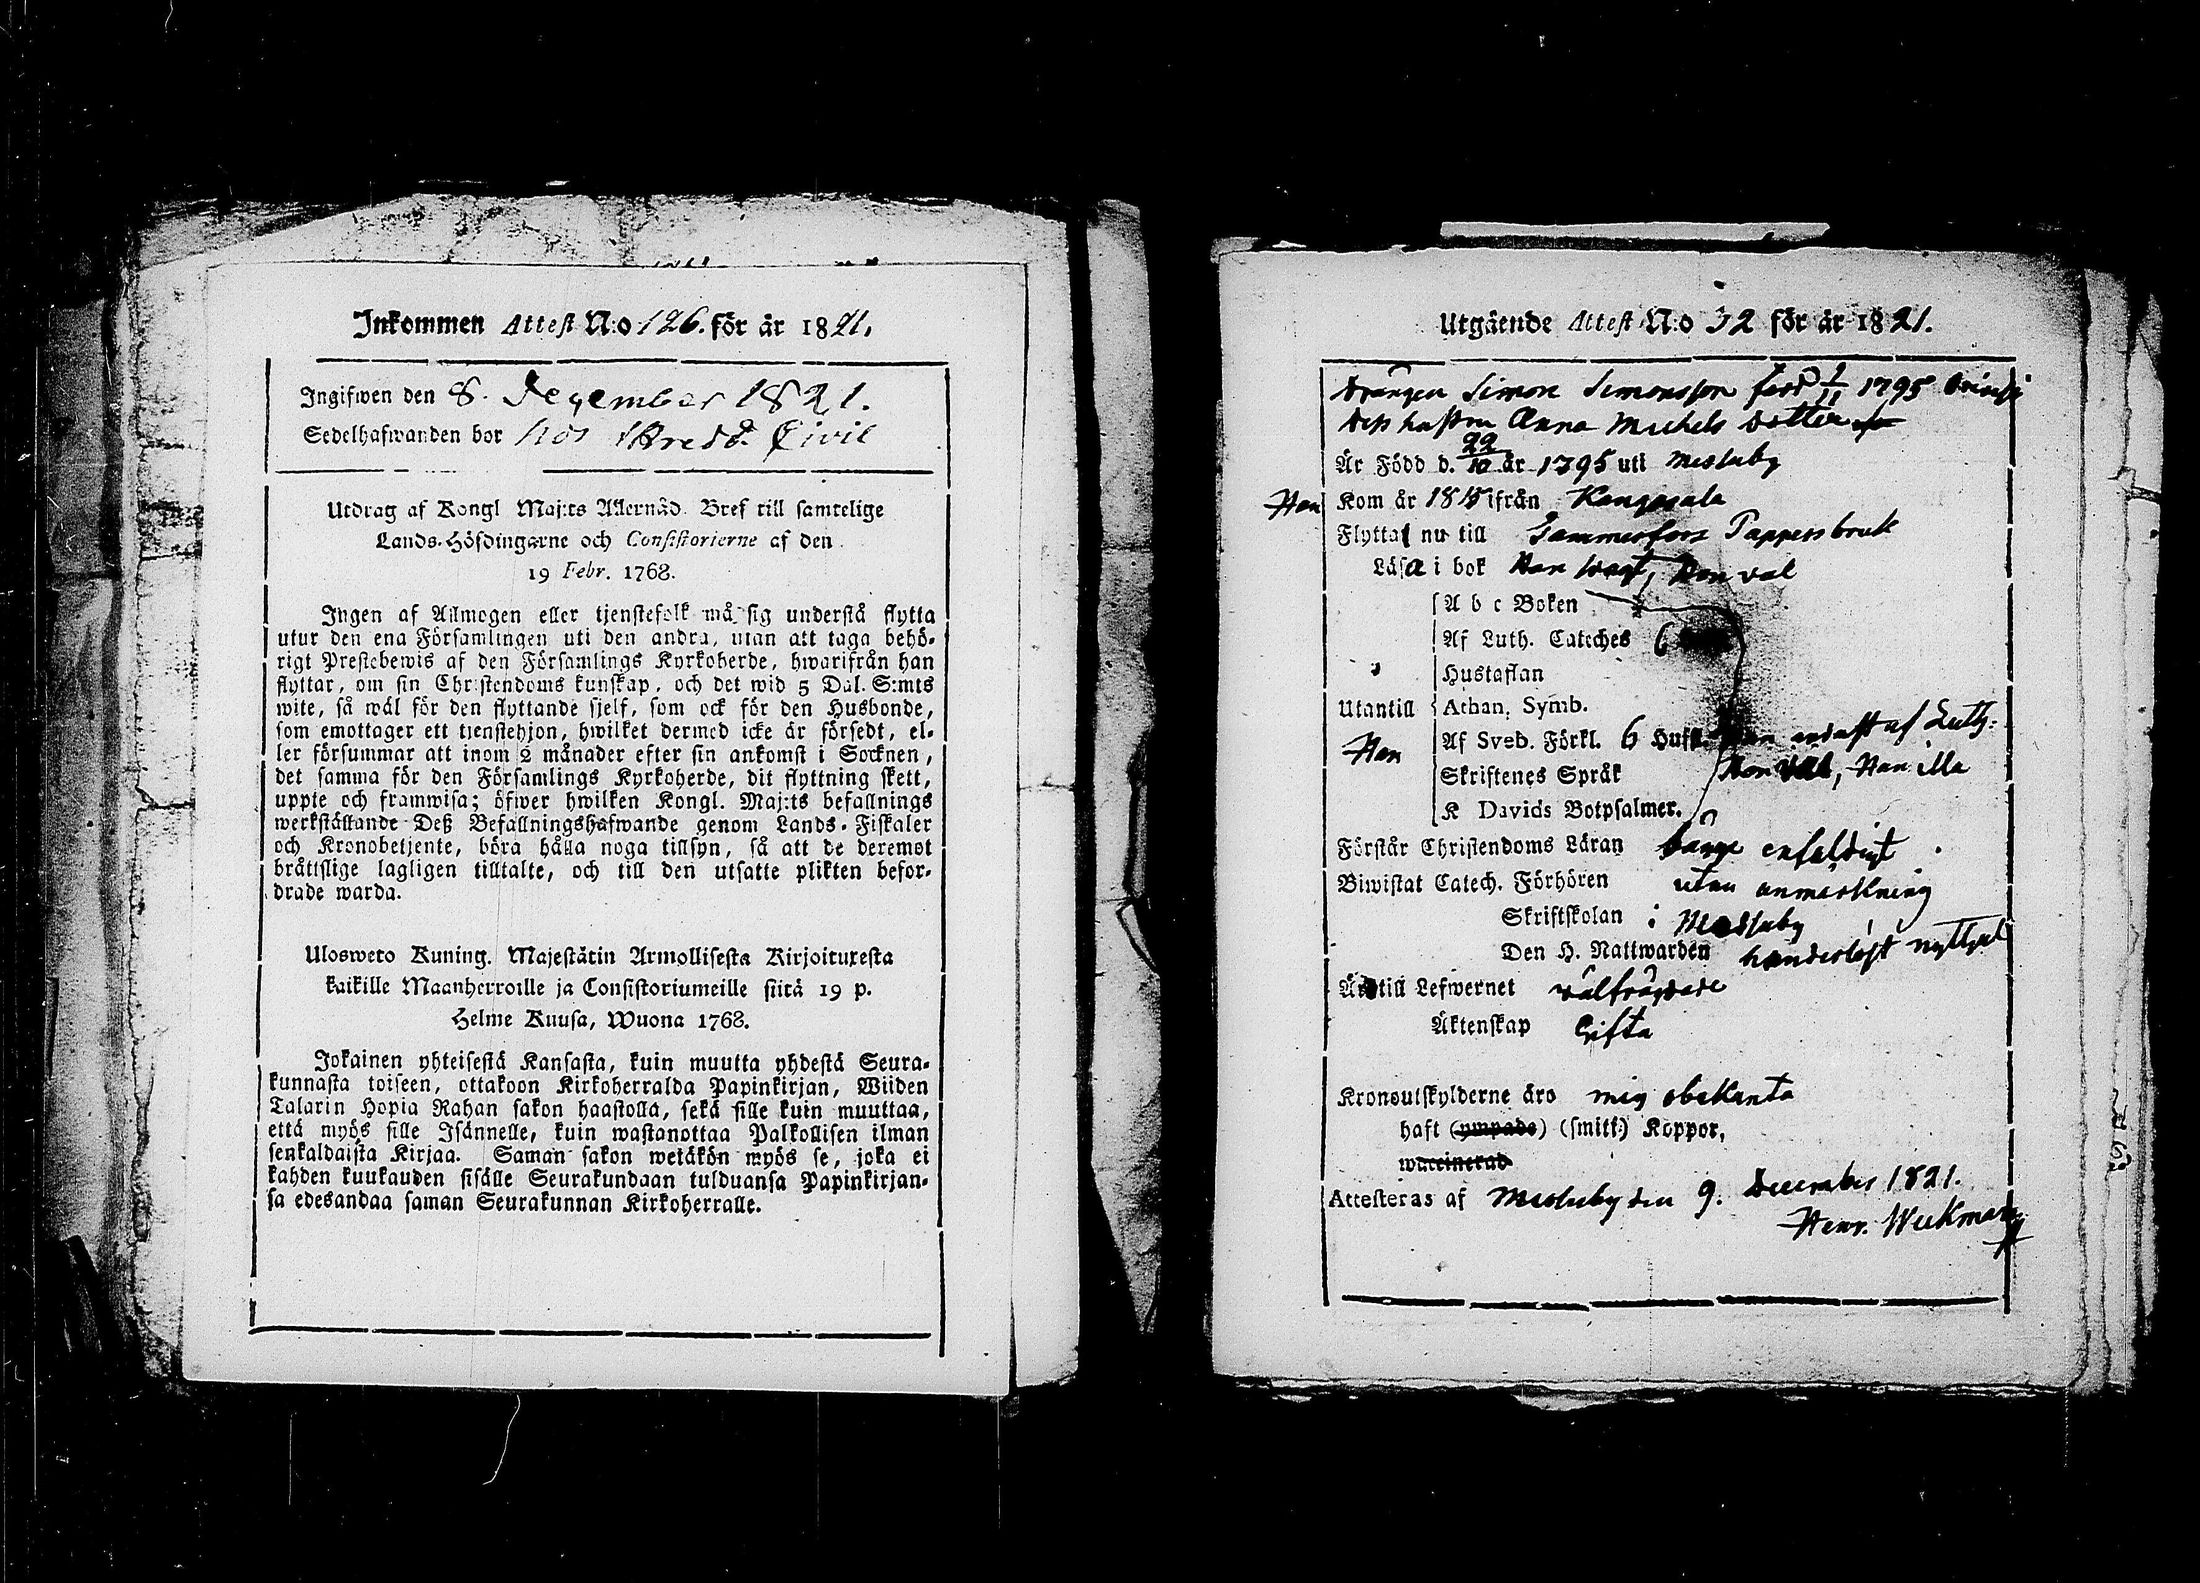 Inkommen Attest N:o 126. för år 1821.
Ingifwen den 8. Dezember 1821.
Sedelhafwanden bor hos Civil
Utdrag af Kongl Maj:ts Allernåd. Bref till samtelige
Lands-Höfdingarne och Consistorierne af den
19 Febr. 1768.
Ingen af Allmogen eller tjenstefolk må sig understå flytta
utur den ena Församlingen uti den andra, utan att taga behö-
rigt Prestebewis af den Församlings Kyrkoherde, hwarifrån han
flyttar, om sin Christendoms kunskap, och det wid 5 Dal. S:mts
wite, så wäl för den flyttande sjelf, som ock för den Husbonde,
som emottager ett tjenstehjon, hwilket dermed icke är försedt, el-
ler försummar att inom 2 månader efter sin ankomst i Socknen,
det samma för den Församlings Kyrkoherde, dit flyttning skett,
uppte och framwisa; öfwer hwilken Kongl. Maj:ts befallnings
werkställande Deß Befallningshafwande genom Lands-Fiskaler
och Kronobetjente, böra hålla noga tillsyn, så att de deremot
bråttslige lagligen tilltalte, och till den utsatte plikten befor-
drade warda.
Ulosweto Kuning. Majestätin Armollisesta Kirjoituxesta
kaikille Maanherroille ja Consistoriumeille siitä 19 p.
Helme Kuusa, Wuona 1768.
Jokainen yhteisestä Kansasta, kuin muutta yhdestä Seura-
kunnasta toiseen, ottakoon Kirkoherralda Papinkirjan, Wiiden
Talarin Hopia Rahan sakon haastolla, sekä sille kuin muuttaa,
että myös sille Isännelle, kuin wastanottaa Palkollisen ilman
senkaldaista Kirjaa. Saman sakon wetäkön myös se, joka ei
kahden kuukauden sisälle Seurakundaan tulduansa Papinkirjan-
sa edesandaa saman Seurakunnan Kirkoherralle.
Utgående Attest N:o 32 för år 1821.
Drängen Simon Simonsson född 1/11 1795
Dess hustru Anna Michels Dotter
Är Född d. 22/10 år 1795 uti Messuby
Han Kom år 1815 ifrån Kangasala
Flytta nu till Tammerfors Pappersbruk
Läsa i bok Han swagt, Hon väl
A b c Boken
Af Luth. Cateches 6
Hustaflan
Utantill Athan. Symb.
Han Af Sveb. Förkl. 6 Hufst. endast af Luth.
Skriftenes Språk Hon väl, Han illa
K Davids Botpsalmer.
Förstår Christendoms Läran enfaldigt
Biwistat Catech. Förhören utan anmärkning
Skriftskolan i Messuby
Den H. Nattwarden nyttjat
Äro till Lefwernet wälfrägdade
Äktenskap Gifta
Kronoutskylderne äro mig obekanta
haft (ympade) (smitt:) Koppor,
waccinerad
Attesteras af Messuby den 9. December 1821.
Henr. Weckman